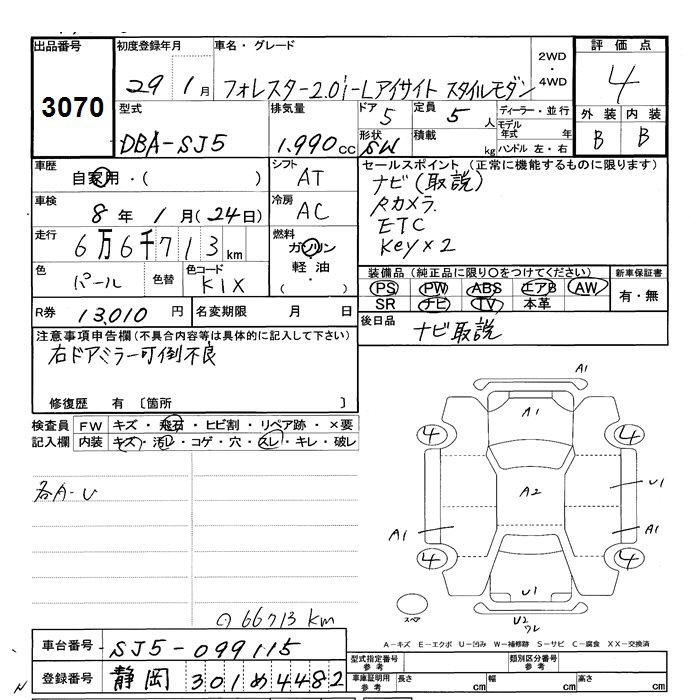 出品番号 3070
初度登録年月 29年1月
車名・グレード フォレスター2.0i-Lアイサイト スタイルモダン
2WD・4WD
評価点 4
外装 内装
B B
型式 DBA-SJ5
排気量 1.990cc
ドア 5
形状 SW
定員 5人
積載 kg
ディーラー・並行
モデル年式 年
ハンドル 左・右
車歴 自家用・( )
車検 8年1月(24日)
走行 6万6千713km
色 パール 色替 色コード K1X
シフト AT
冷房 AC
燃料 ガソリン
軽油
・( )
セールスポイント(正常に機能するものに限ります)
ナビ(取説)
タカメラ
ETC
Key×2
装備品(純正品に限り○をつけてください) 新車保証書
PS PW ABS エアB AW 有・無
SR ナビ TV 本革
R券 13,010円 名変期限 月 日
後日品 ナビ取説
注意事項申告欄(不具合内容等は具体的に記入して下さい)
右ドアミラー可倒不良
修復歴 有 〔箇所 〕
検査員 FW キズ・飛石・ヒビ割・リペア跡・×要
記入欄 内装 キズ・汚レ・コゲ・穴・スレ・キレ・破レ
各A-U
A1
A1
4 4
A2
U1
A1 A1
4 4
U1
スペア
U2
ワレ
66713km
A-キズ E-エクボ U-凹み W-補修跡 S-サビ C-腐食 XX-交換済
車台番号 SJ5-099115
登録番号 静岡 301 め 4482
型式指定番号 参考 類別区分番号 参考
車庫証明用 参考 長さ cm 幅 cm 高さ cm